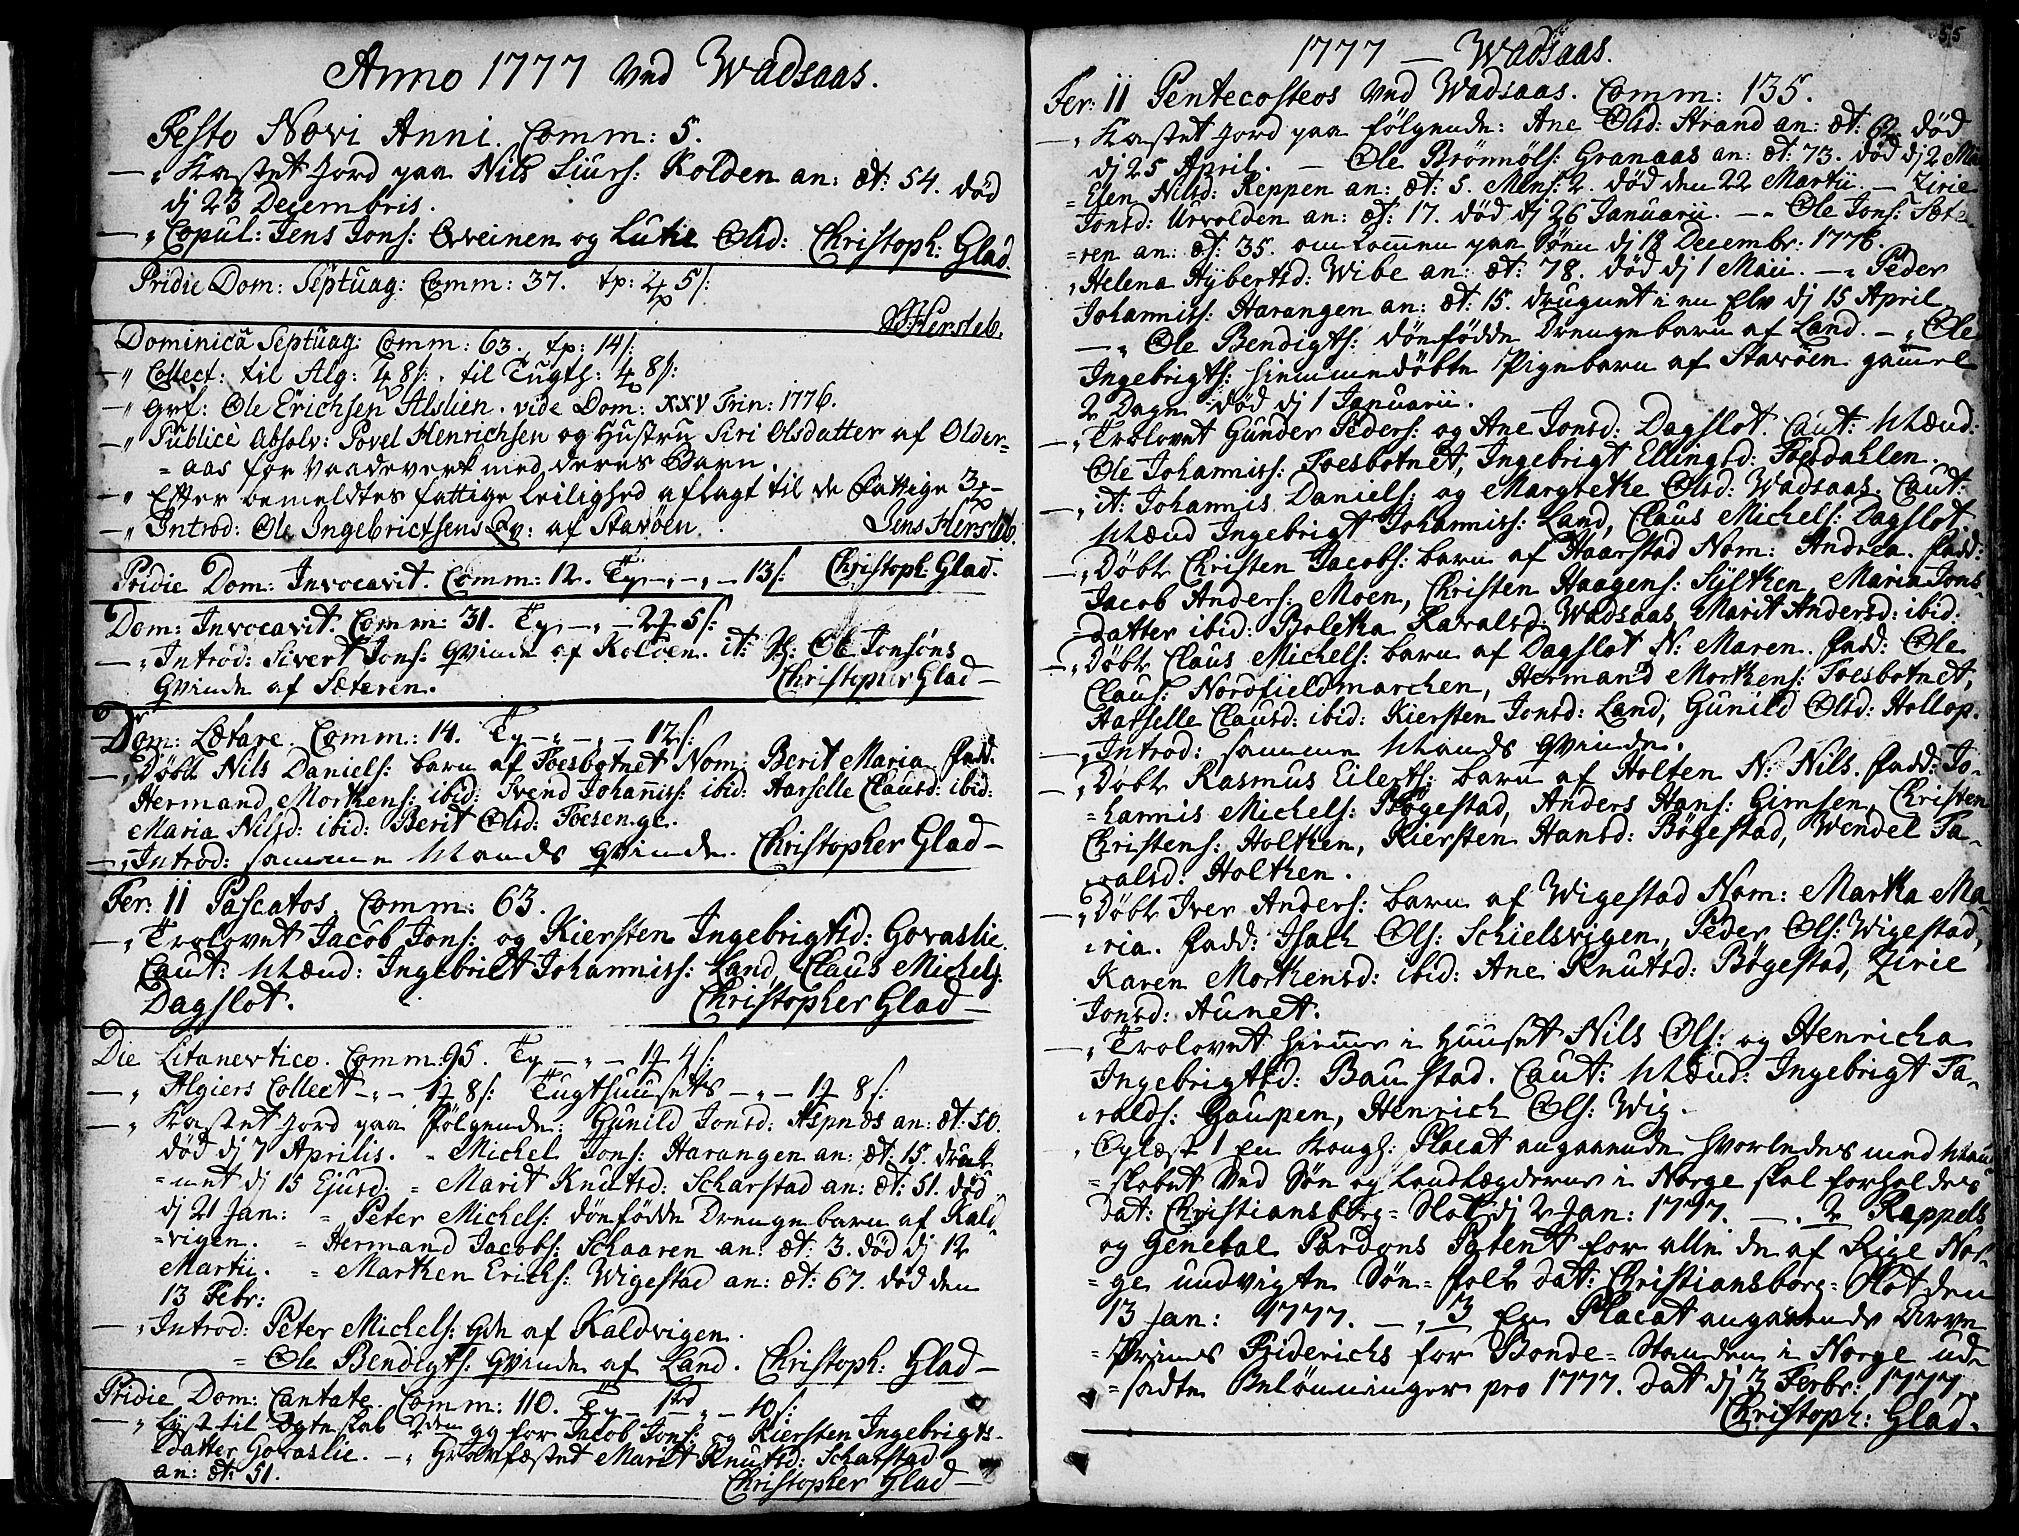 Anno 1777 ved Wadsaas.
Festo Novi Anni. Comm: 5.
—„ Kastet Jord paa Nils Siurs: Kolden an: æt: 54. død
dj 23 Decembris.
—„ Copul: Jens Jons: Qveinen og Lutie Olsd: Christoph: Glad.
Pridie Dom: Septuag: Comm: 37. tp: 5/:
J. Hersleb.
Dominicâ Septuag: Comm: 63. tp: 14/:
—„ Collect: til Alg: 8/:. til Tugth: 8/:
—„ Grf: Ole Erichsen Alslien. vide Dom: XXV Trin: 1776.
—„ Publicè Absolv: Povel Henrichsen og Hustru Siri Olsdatter af Older-
=aas for Vaadeverk med deres Barn.
—„ Efter bemeldtes fattige Leilighed aflagt til de Fattige 3
—„ Introd: Ole Ingebrictsens Qv: af Stavöen Jens Hersleb.
Pridie Dom: Invocavit. Comm: 12. Tp —„— 13/: Christoph: Glad.
Dom: Invocavit. Comm: 31. Tp —„— 5/:
—„ Introd: Sivert Jons: Qvinde af Kolden. it: Ole Jonsöns
Qvinde af Sæteren. Christopher Glad—
Dom: Lætare. Comm: 14. Tp —„— 12/:
—„ Döbt Nils Daniels: barn af Foesbotnet Nom: Berit Maria. Fadd:
Hermand Morkens: ibid: Svend Johaniss: ibid: Harselle Clausd: ibid:
Maria Nilsd: ibid: Berit Olsd: Foesen.
—„ Introd: samme Mands Qvinde. Christopher Glad—
Fer: II Pascatos. Comm: 63.
—„ Trolovet Jacob Jons: og Kiersten Ingebrigtsd: Govaslie.
Caut: Mænd: Ingebrict Johanniss: Land, Claus Michels:
Dagslot. Christopher Glad—
Die Litanevtico. Comm: 95. Tp —„— 4/:
—„ Algiers Collect —„— 8/: Tugthuusets —„— 8/:
—„ Kastet Jord paa følgende: Gunild Jonsd: Aspnæs an: æt: 50.
død dj 7 Aprilis. = Michel Jons: Harangen an: æt: 15. druk-
=net dj 15 Ejusd: = Marit Knutsd: Scharstad an: æt: 51. død
dj 21 Jan: = Peter Michels: dödfödde Drengebarn af Kald-
=vigen. = Hermand Jacobs: Schaaren an: æt: 3. død dj 12
Martii. = Marken Erichs: Wigestad an: æt: 67. død den
13 Febr:
—„ Introd: Peter Michels: Qde af Kaldvigen.
= Ole Bendigts: Qvinde af Land. Christoph: Glad—
Pridie Dom: Cantate. Comm: 110. Tp — 1rd „— 10/:
—„ Lyst til Egteskab 2den gg for Jacob Jons: og Kiersten Ingebrigts-
datter Govaslie. —„ Gravfæstet Marit Knutsd: Scharstad
an: æt: 51. Christopher Glad—
55
1777 — Wadsaas.
Fer: II Pentecosteos ved Wadsaas. Comm: 135.
—„ Kastet Jord paa følgende: Ane Olsd: Strand an: æt: 62 død
dj 25 April. — Ole Brönnöls: Granaas an: æt: 73. død dj 2 Mai
=Elen Nilsd: Reppen an: æt: 5. Mens: 2. død den 22 Martii. — Zirie
Jonsd: Urvolden an: æt: 17. død dj 26 Januarii. —„ Ole Jons: Sæte-
=ren an: æt: 35. omkommen paa Söen dj 18 Decembr: 1776.
„Helena Hybertsd: Wibe an: æt: 78. død dj 1 Maii. —„ Peder
Johaniss: Harangen an: æt: 15. druknet i en Elv dj 15 April.
—„ Ole Bendigts: dödfödde Drengebarn af Land. —„ Ole
Ingebrigts: hiemmedöbte Pigebarn af Stavöen gammel
2 Dage död dj 1 Januarii.
—„ Trolovet Gunder Peders: og Ane Jonsd: Dagslot Caut: Mænd:
Ole Johanniss: Foesbotnet, Ingebrigt Ellings: Foesdahlen.
—„ it: Johannis Daniels: og Margreke Olsd: Wadsaas. Caut:
Mænd Ingebrigt Johanniss: Land, Claus Michels: Dagslot.
—„ Döbt Christen Jacobs: barn af Haarstad Nom: Andrea. Fadd:
Jacob Anders: Moen, Christen Haagens: Sylthen, Maria Jons-
datter ibid: Boletha Haralsd: Wadsaas, Marit Andersd: ibid:
—„ Döbt Claus Michels: barn af Dagslot N: Maren. Fadd: Ole
Claus: Nordfieldmarchen, Hermand Morkens: Foesbotnet,
Harselle Clausd: ibid: Kiersten Jonsd: Land, Gunild Olsd: Hollop.
—„ Introd: samme Mands Qvinde.
—„ Döbt Rasmus Eilerts: barn af Holten N: Nils. Fadd: Jo-
=hannis Michels: Bögestad, Anders Hans: Gimsen, Christen
Christens: Holthen, Kiersten Hansd: Bögestad, Wendel Ta-
ralsd: Holthen.
—„ Döbt Iver Anders: barn af Wigestad Nom: Martha Ma-
=ria. Fadd: Isach Ols: Schielsvigen, Peder Ols: Wigestad,
Karen Morkensd: ibid: Ane Knutsd: Bögestad, Zirie
Jonsd: Aunet.
—„ Trolovet hieme i Huuset Nils Ols: og Henricha
Ingebrigtsd: Baustad. Caut: Mænd: Ingebrigt Ta-
ralds: Gaupen, Henrich Ols: Wig.
„ Oplæst 1 En Kongl: Placat angaaende hvorledes med Mand-
=skabet ved Söe og Landlægderne i Norge skal forholdes
dat: Christiansborg=Slot dj 2 Jan: 1777. —. 2 Rappels
og General Pardons Patent for alle de af Rige Nor-
=ge undvigte Söe=folk dat: Christiansborg=Slot den
13 Jan: 1777. —„ 3 En Placat angaaende Arve
=Prinds Friderichs for Bonde=Standen i Norge ud-
=sadte Belönninger pro 1777. dat dj 3 Ferbr: 1777.
Christoph: Glad.